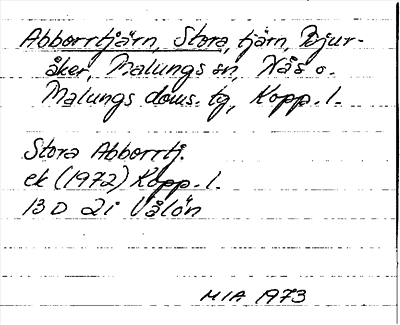 Abborrtjärn, Stora, tjärn, Djur-
åker, Malungs sn, Nås o.
Malungs doms. tg, Kopp. l.
Stora Abborrtj.
ek (1972) Kopp. l.
13 D 2i Vålön
MIA 1973